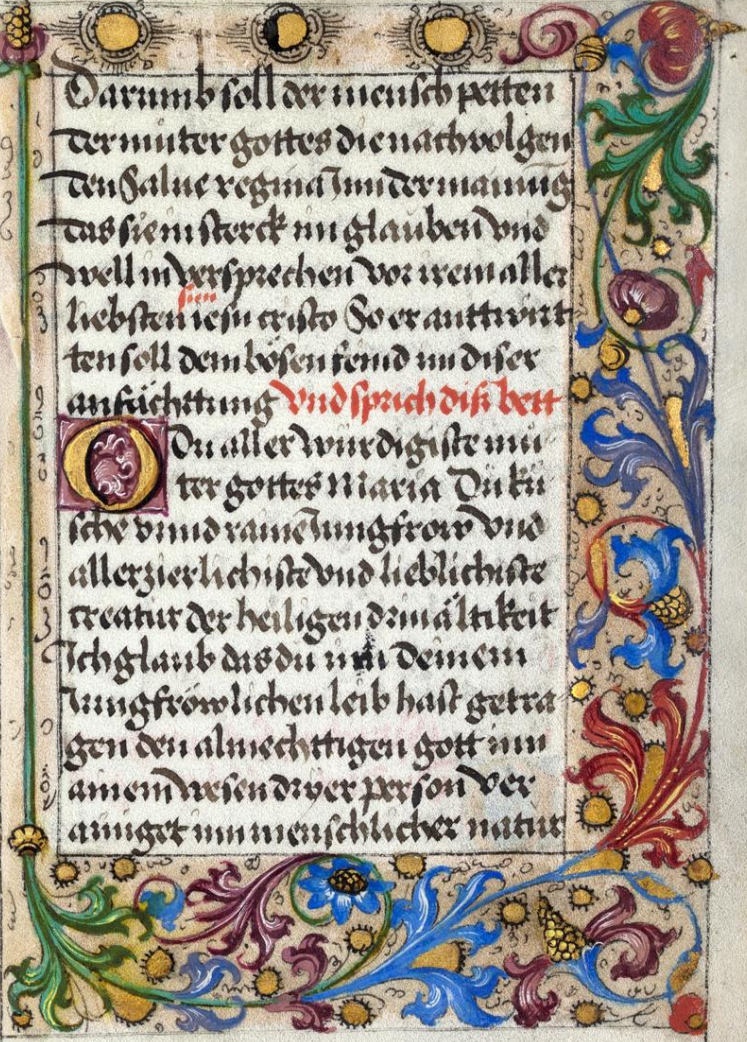 Darumb soll der mensch petten
Der muter gottes die nachvolgen
den Salue regina Inn der mainung
das sie in sterck im glauben vnd
well in versprechen vor irem aller
liebsten sien iesu cristo So er anttwurt
ten soll dem bösen feind inn diser
anfächttung vnd sprich diß bett
O Du aller würdigiste mu
ter gottes Maria Du kü
sche vnnd raine Jungfrow vnd
allerzierlichiste vnd lieblichiste
creatur der heiligen driualtikeit
Ich glaub das du inn deinem
Jungfröwlichen leib hast getra
gen den almechttigen gott inn
ainem wesen dryer person ver
ainiget inn menschlicher natur